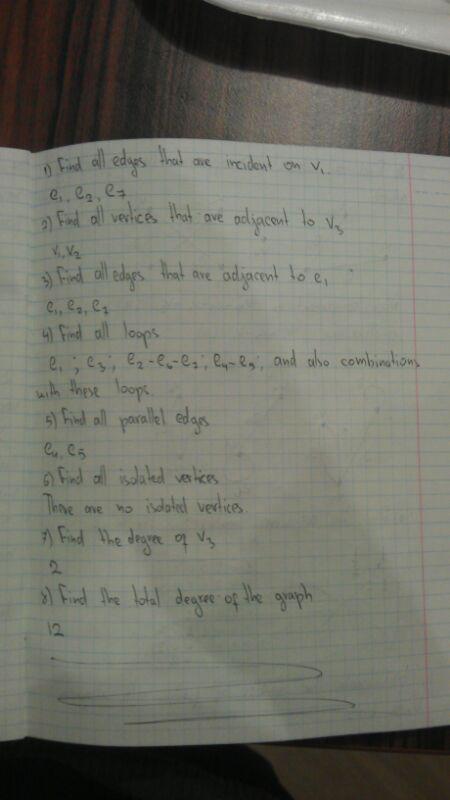 1) Find all edges that are incident on v₁.
e₁, e₂, e₇
2) Find all vertices that are adjacent to v₃
v₁, v₂
3) Find all edges that are adjacent to e₁
e₁, e₂, e₇
4) Find all loops
e₁; e₃; e₂-e₆-e₇; e₄-e₅; and also combinations
with these loops.
5) Find all parallel edges
e₄, e₅
6) Find all isolated vertices
There are no isolated vertices.
7) Find the degree of v₃
2
8) Find the total degree of the graph
12